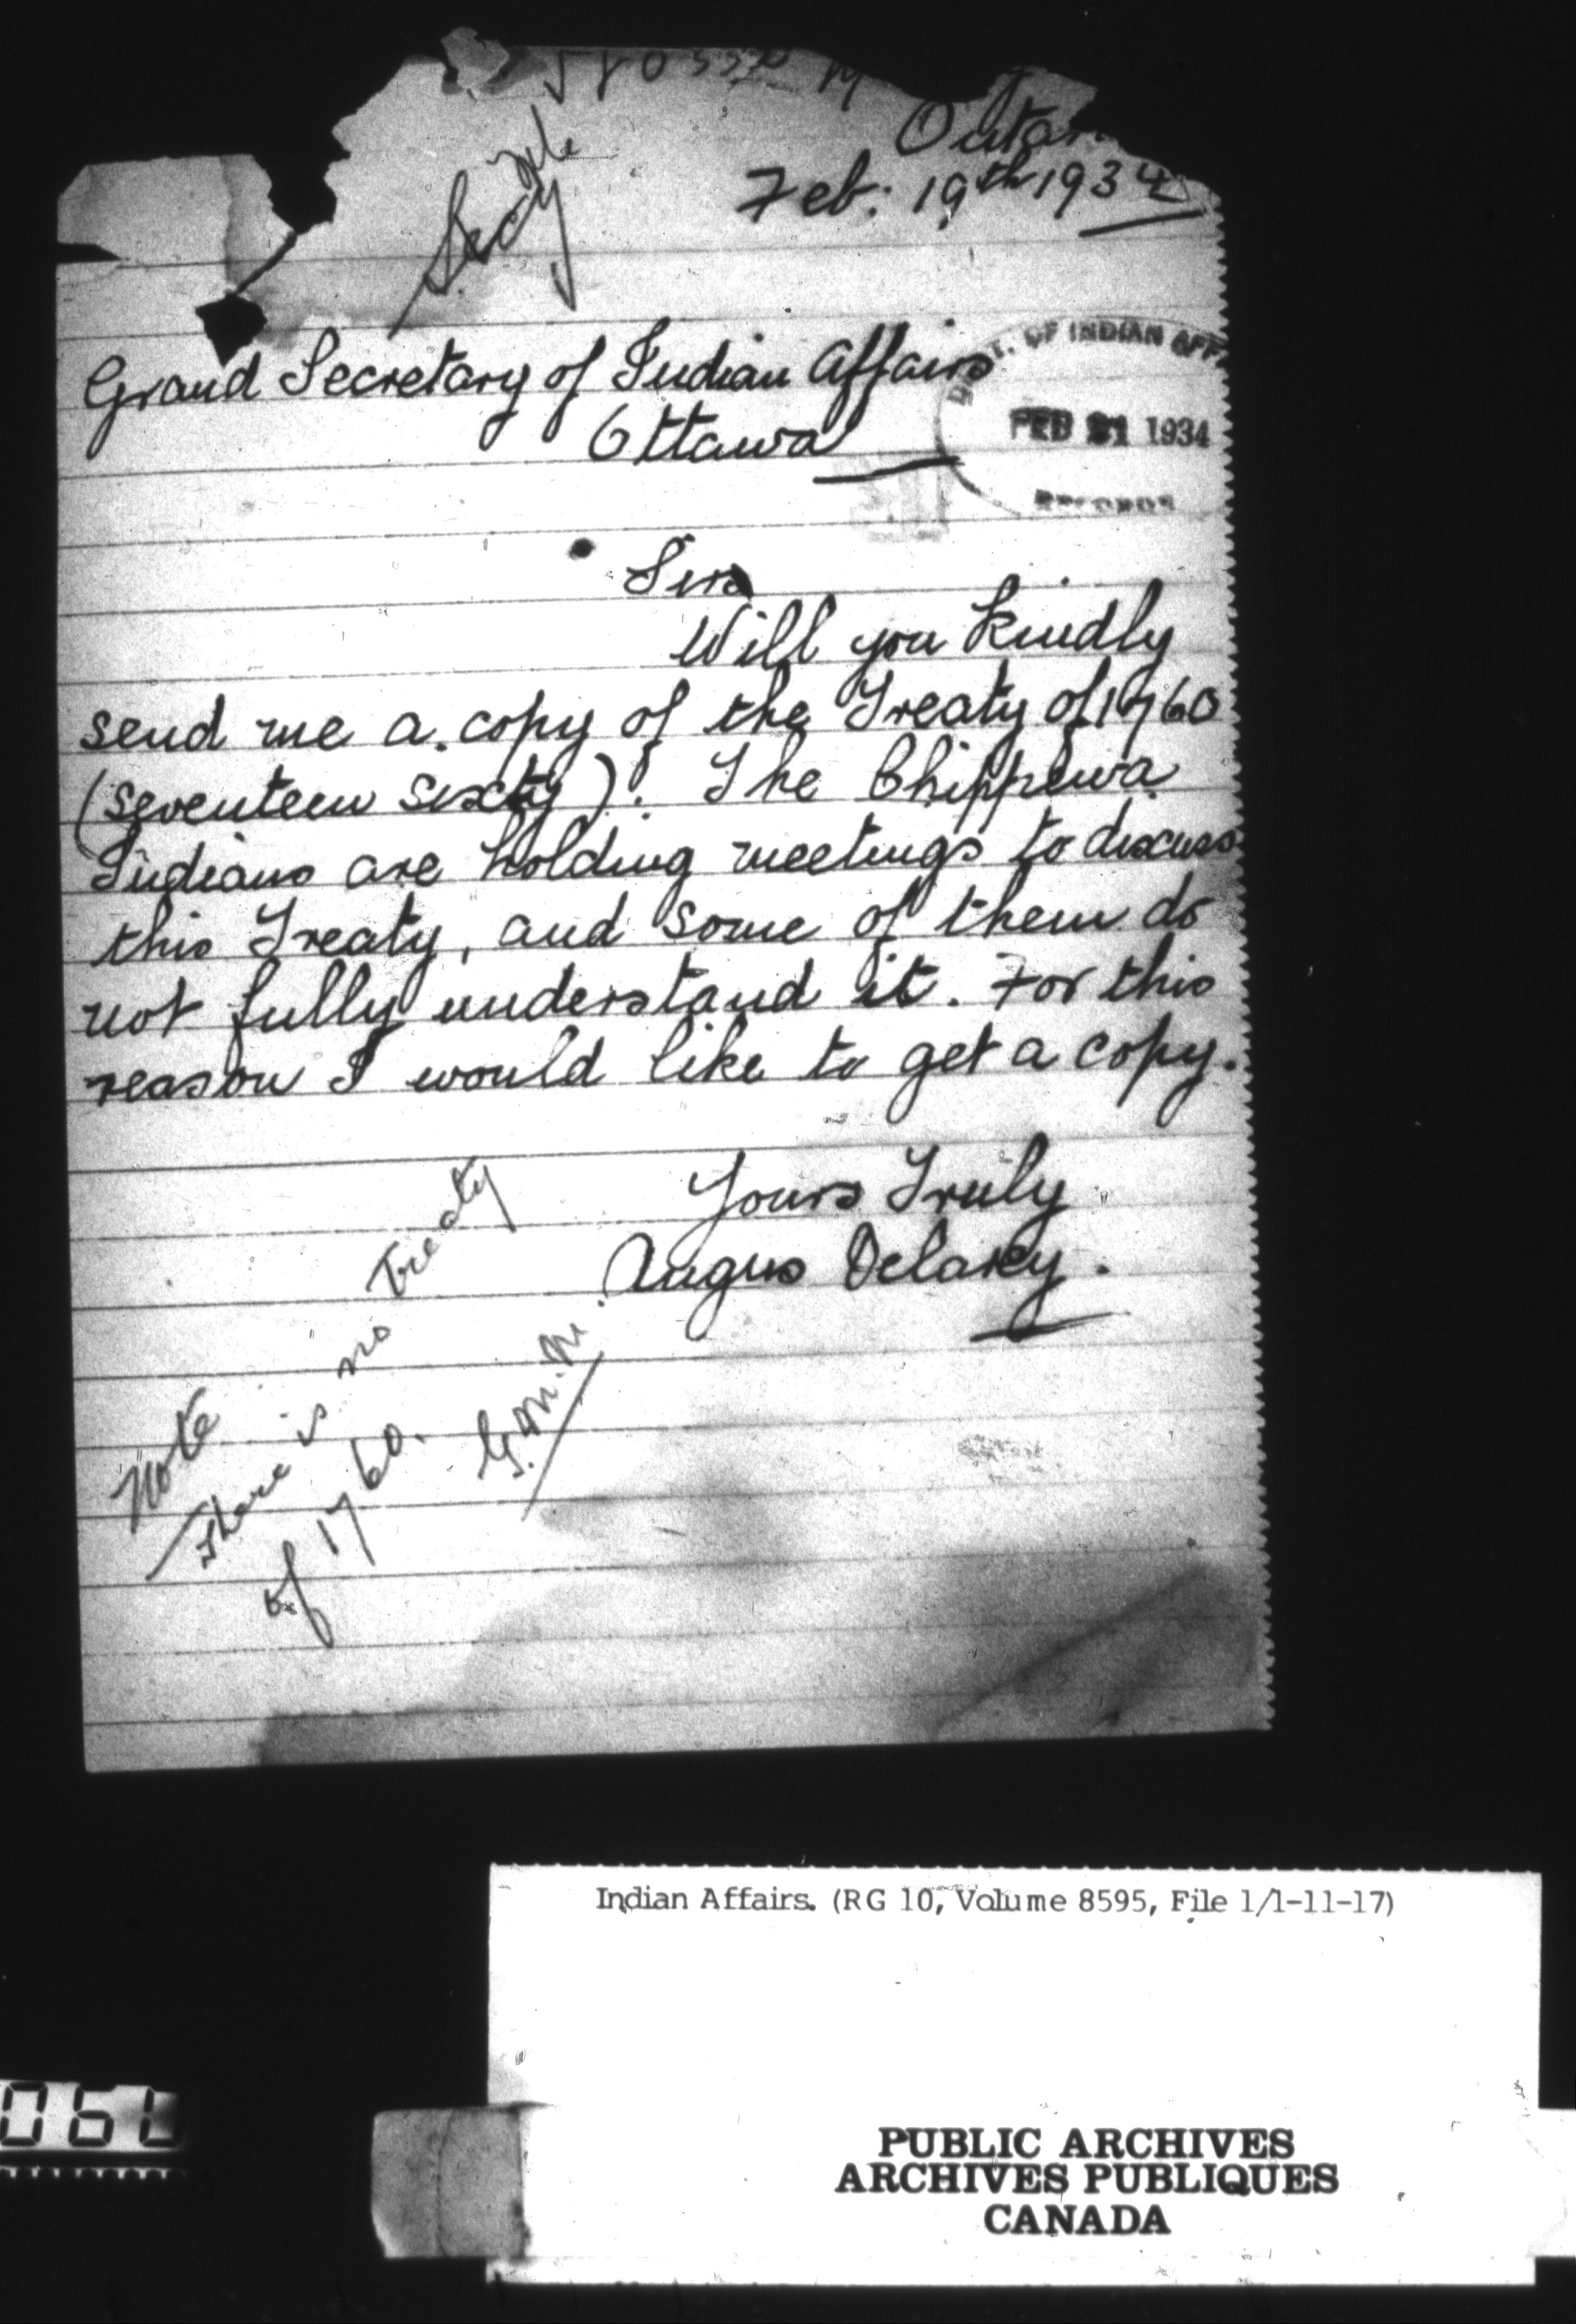 Feb: 19th 1934
Secy
Grand Secretary of Indian Affairs
Ottawa
OF INDIAN AFF
FEB 21 1934
RECORDS
Sir
Will you kindly
send me a copy of the Treaty of 1760
(seventeen sixty). The Chippewa
Indians are holding meetings to discuss
this Treaty, and some of them do
not fully understand it. For this
reason I would like to get a copy.
Yours Truly
Angus Delary.
Note
There is no Treaty
of 1760.
G.M.M.
Indian Affairs. (RG 10, Volume 8595, File 1/1-11-17)
PUBLIC ARCHIVES
ARCHIVES PUBLIQUES
CANADA